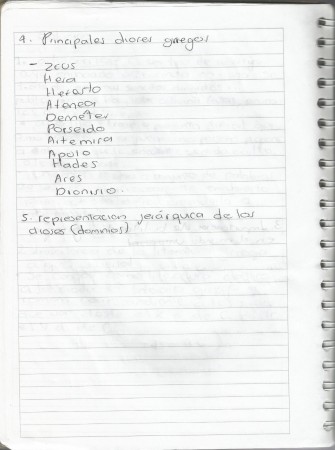 4. Principales dioses griegos
- Zeus
Hera
Hefesto
Atenea
Deméter
Poseido
Artemisa
Apolo
Hades
Ares
Dionisio.
5. representacion jerárquica de los
dioses (dominios)